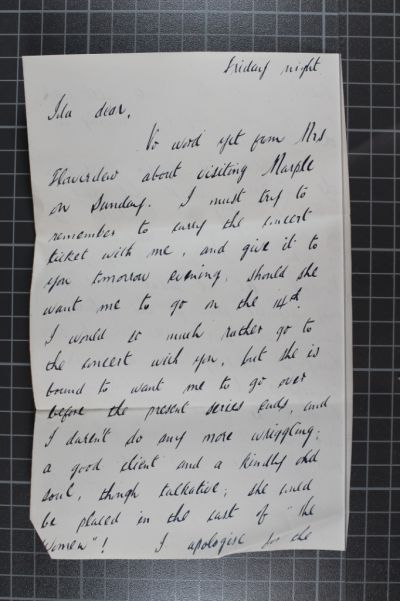 Friday night
Ida dear,
No word yet from Mrs
Flowerdew about visiting Marple
on Sunday. I must try to
remember to carry the concert
ticket with me, and give it to
you tomorrow evening, should she
want me to go on the 14th.
I would so much rather go to
the concert with you, but she is
bound to want me to go over
before the present series ends, and
I daren't do any more wriggling;
a good client and a kindly old
soul, though talkative; she could
be placed in the cast of "the
Women"! I apologise for the